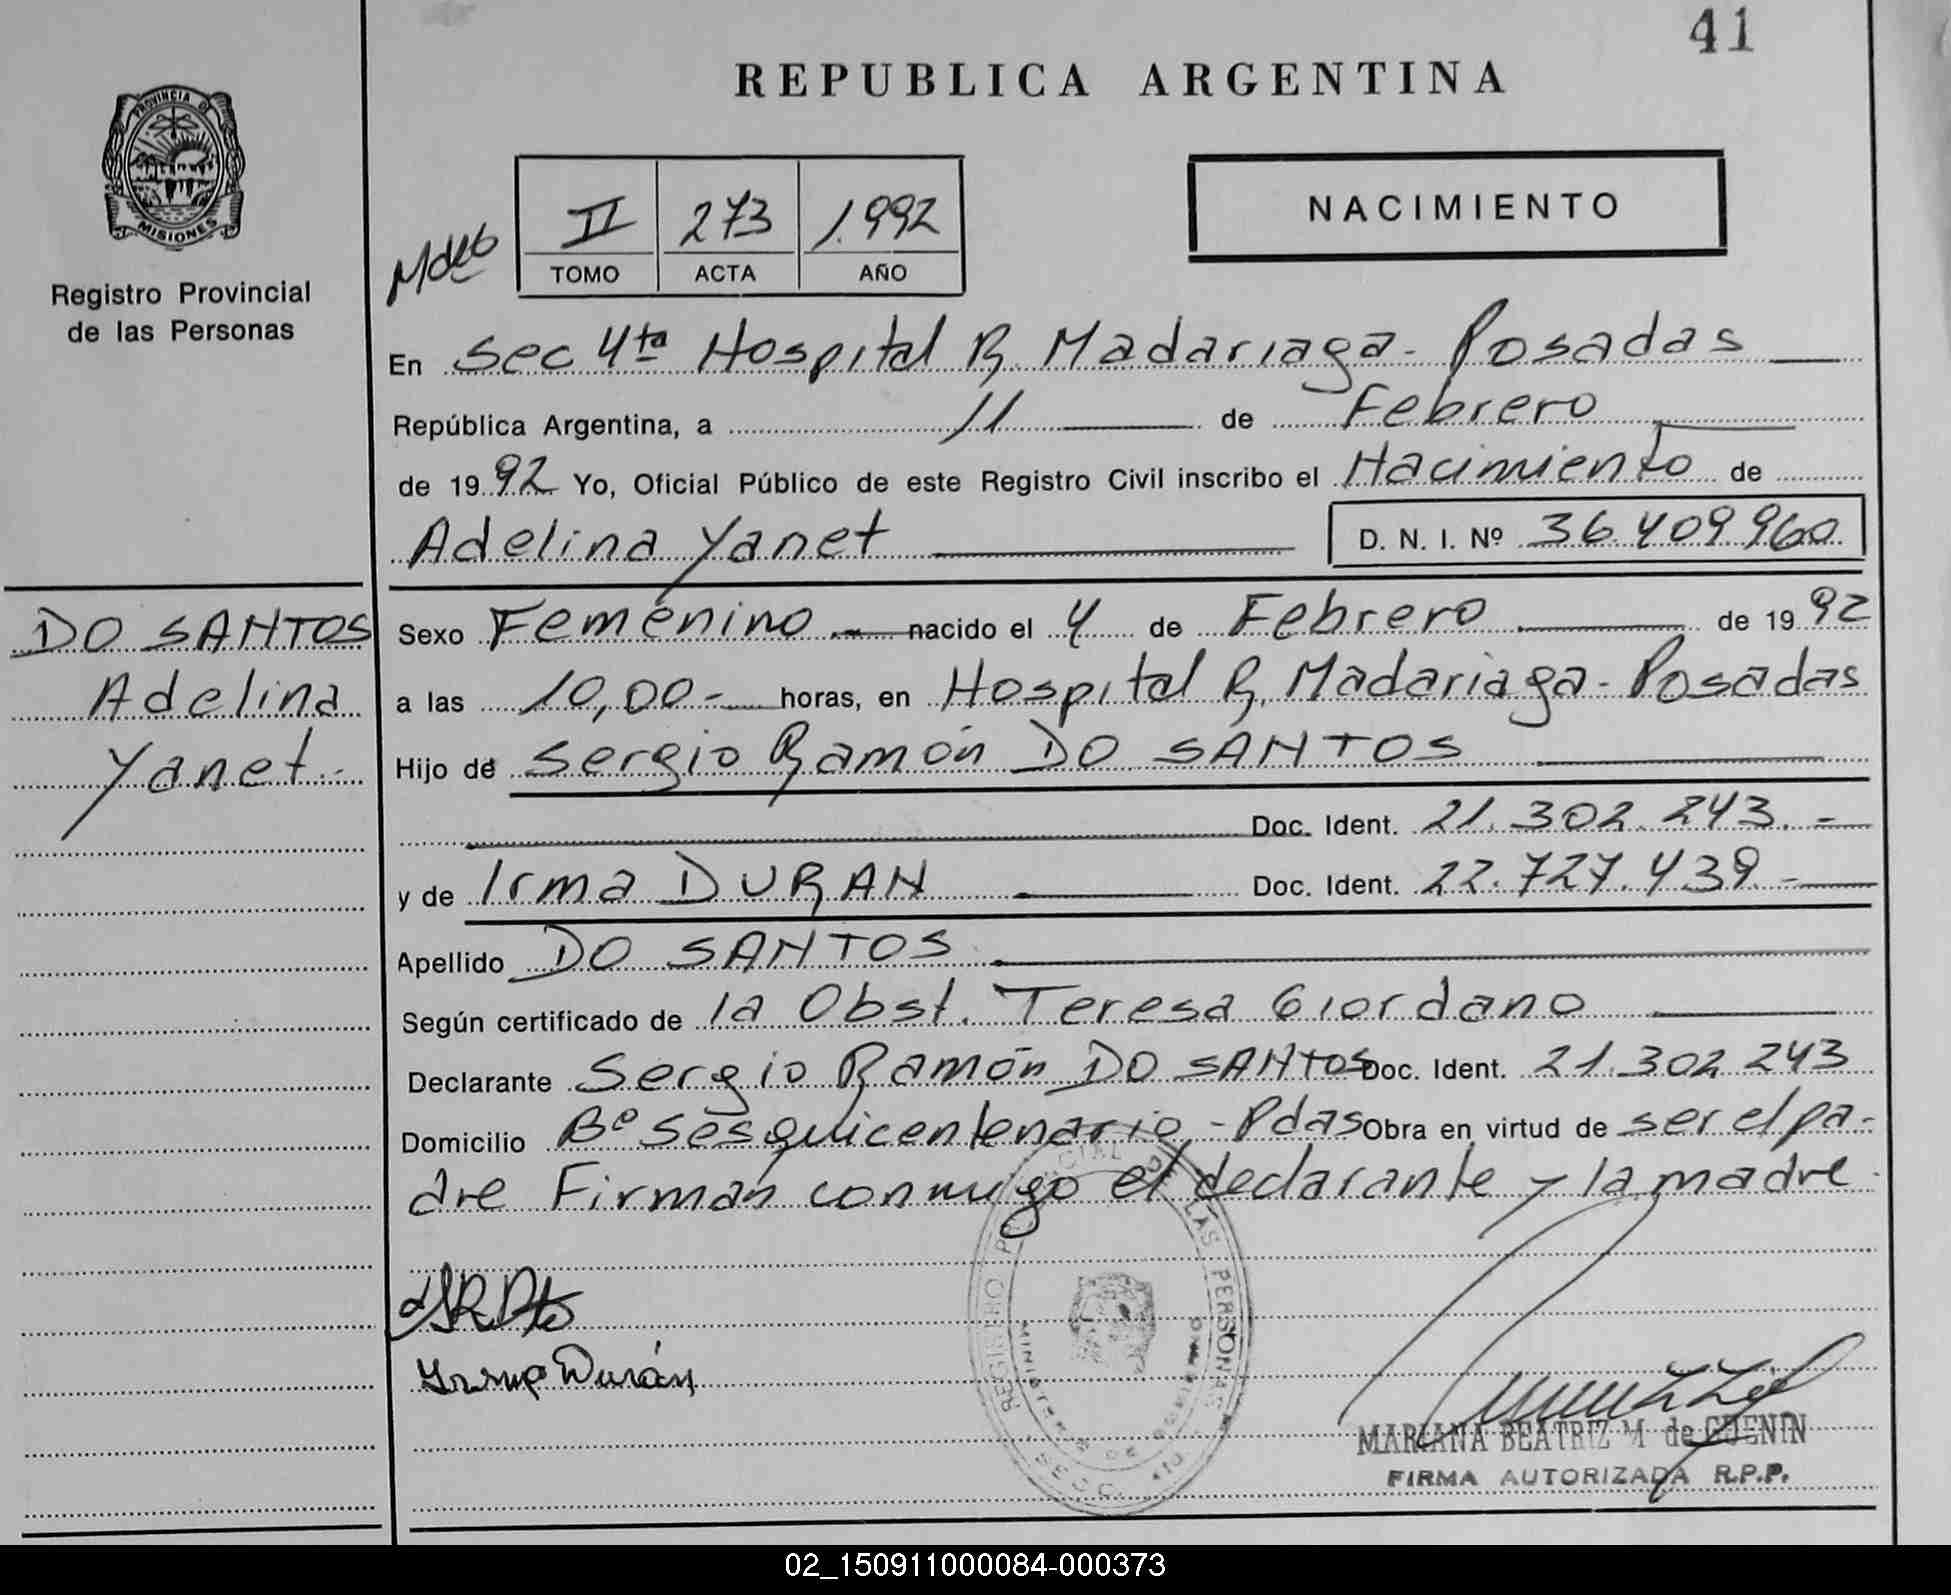 41
REPUBLICA ARGENTINA
PROVINCIA D
MISIONES
Registro Provincial
de las Personas
II 273 1.992
TOMO ACTA AÑO
NACIMIENTO
En Sec 4ta Hospital R. Madariaga - Posadas
República Argentina, a 11 de Febrero
de 1992 Yo, Oficial Público de este Registro Civil inscribo el Nacimiento de
Adelina Yanet D. N. I. Nº 36.409.960
DO SANTOS
Adelina
Yanet.-
Sexo Femenino nacido el 4 de Febrero de 1992
a las 10,00.- horas, en Hospital R. Madariaga - Posadas
Hijo de Sergio Ramón DO SANTOS
Doc. Ident. 21.302.243.-
y de Irma DURAN Doc. Ident. 22.727.439.-
Apellido DO SANTOS.
Según certificado de la Obst. Teresa Giordano
Declarante Sergio Ramón DO SANTOS Doc. Ident. 21.302.243
Domicilio Bº Sesquicentenario - Pdas Obra en virtud de ser el pa-
dre Firman conmigo el declarante y la madre.
REGISTRO P CIAL D LAS PERSONAS
Irma Durán
MARIANA BEATRIZ M de GUENIN
FIRMA AUTORIZADA R.P.P.
02_150911000084-000373